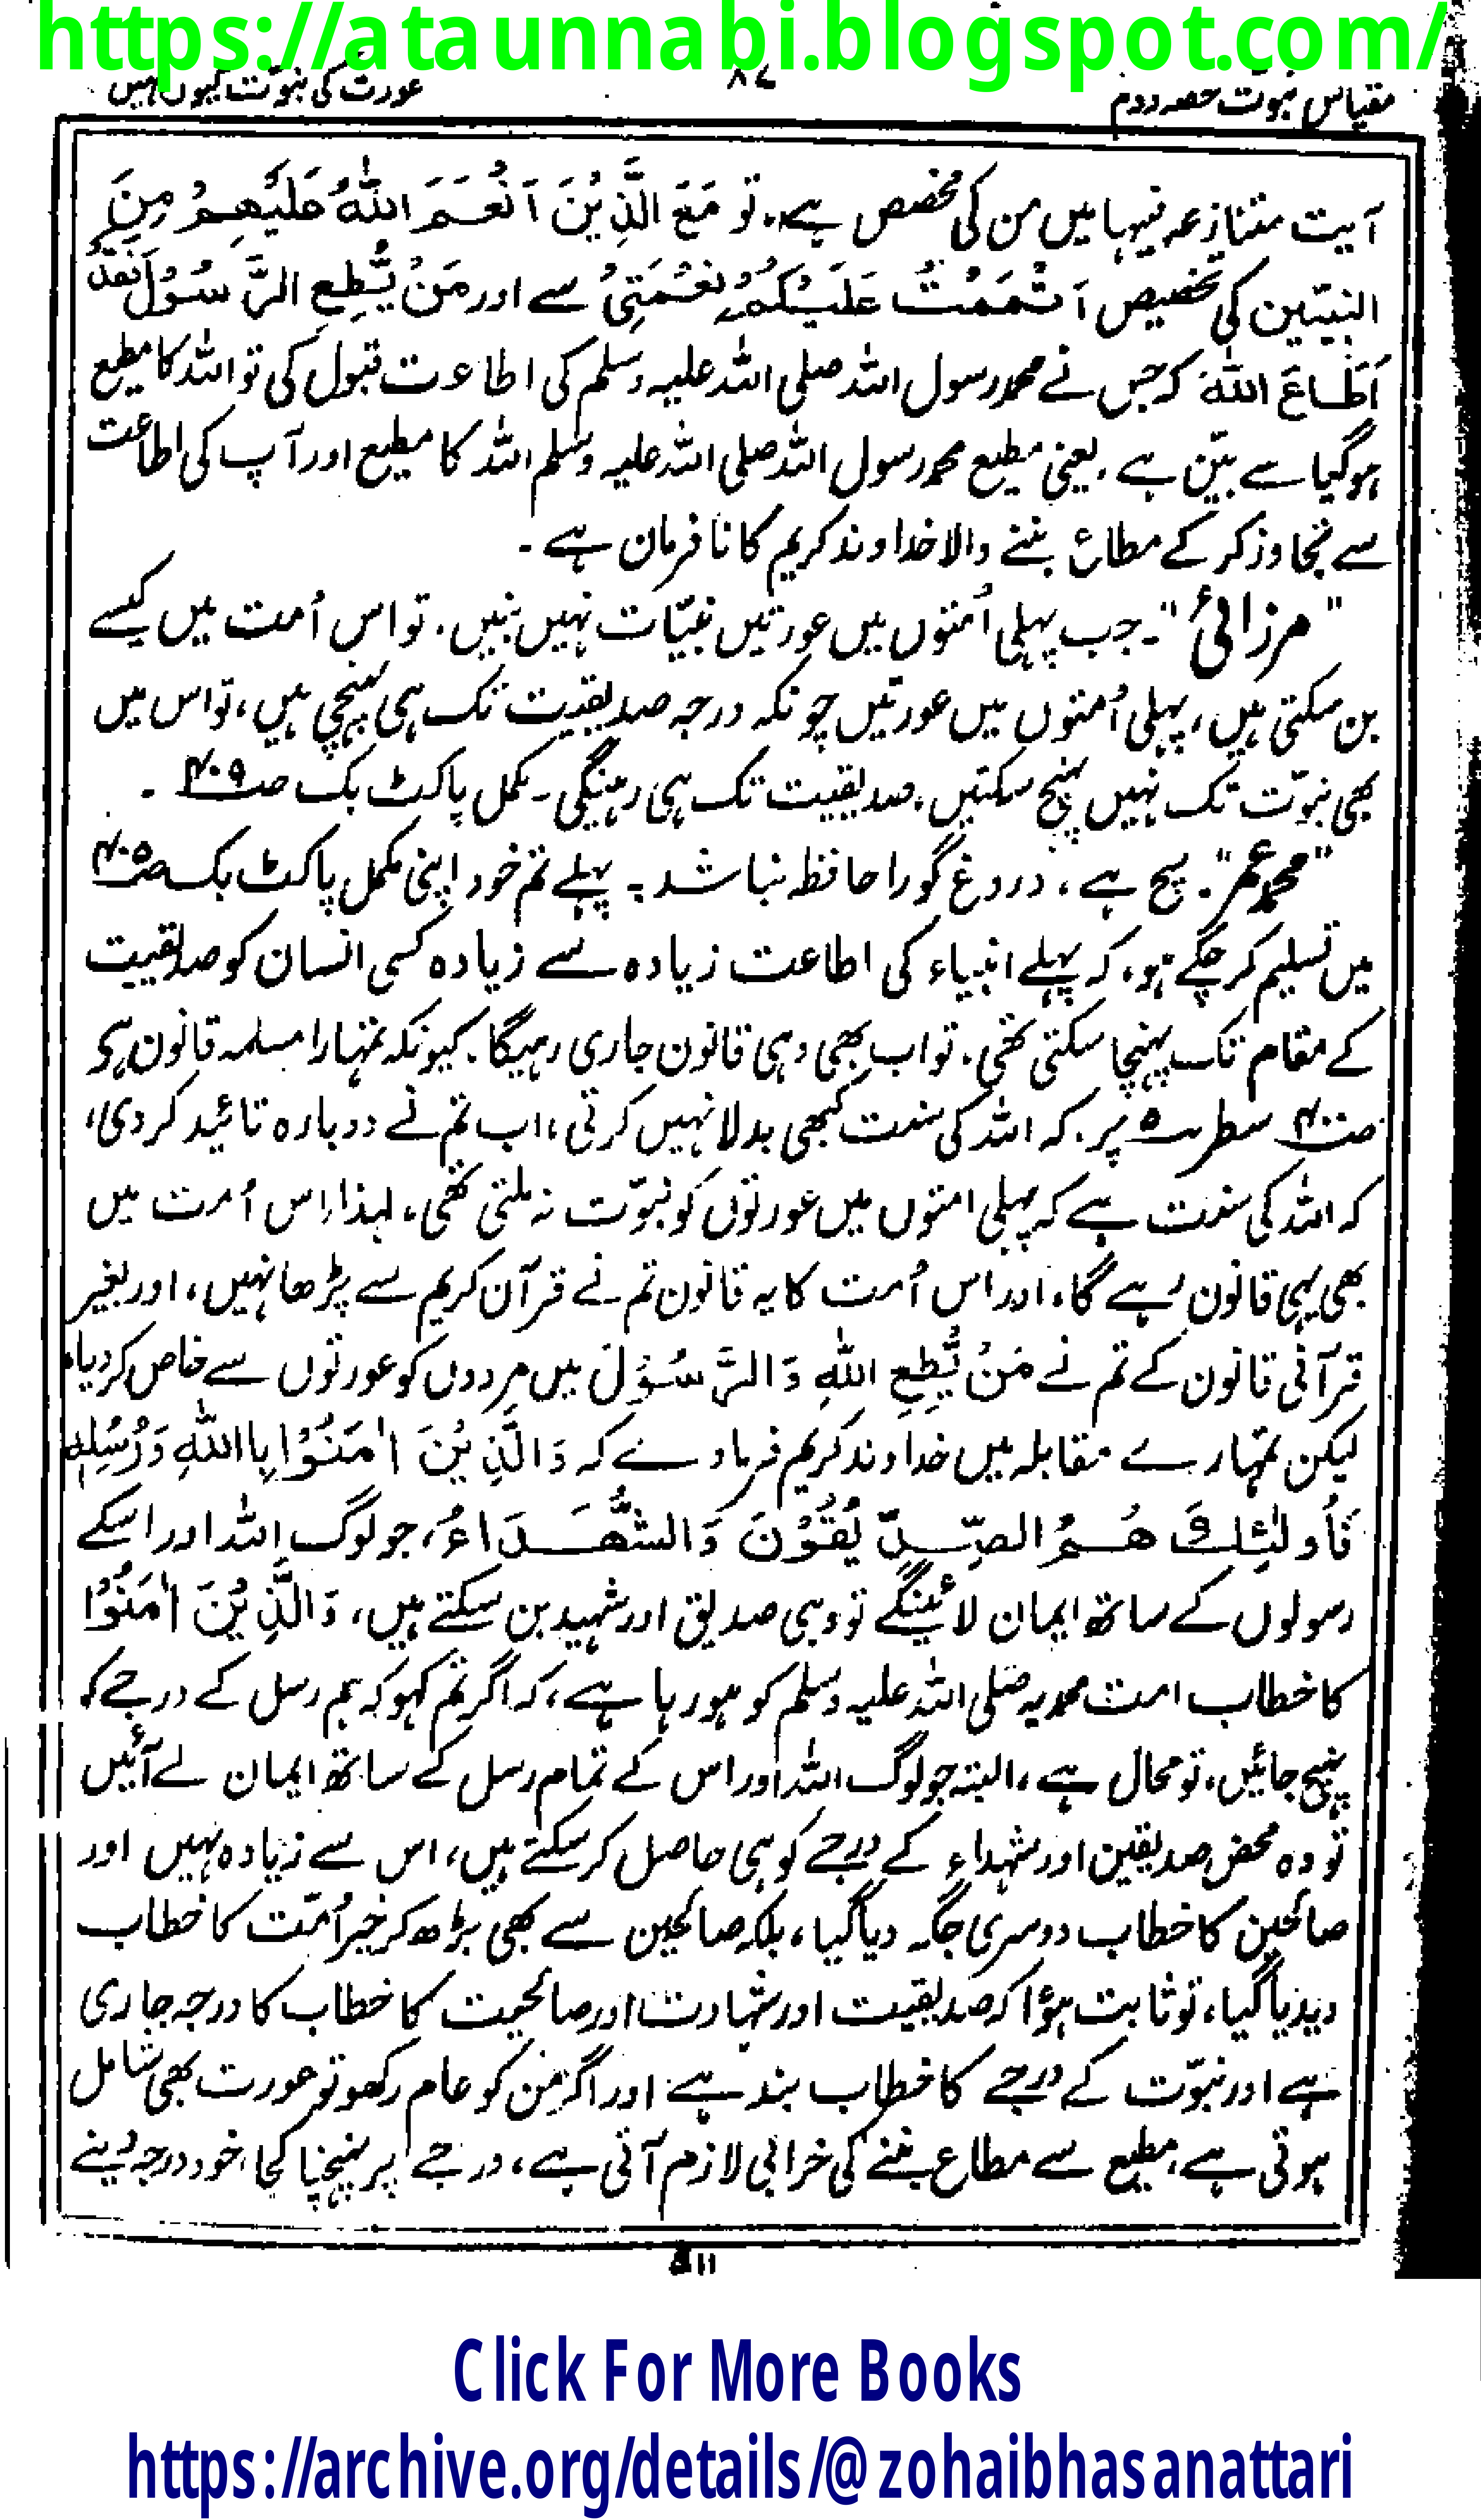 https://ataunnabi.blogspot.com/
مقیاس نبوت حصہ دوم
۸۷
عورت کی نبوّت کیوں نہیں
آیت متنازعہ فیہا میں من کی مخصص ہے۔ تو مَعَ الَّذِیْنَ اَنْعَمَ اللّٰہُ عَلَیْہِمْ مِنَ
النبیّین کی تخصیص اَتْمَمْتُ عَلَیْکُمْ نِعْمَتِیْ سے اور مَنْ یُّطِعِ الرَّسُوْلَ فَقَدْ
اَطَاعَ اللّٰہَ کہ جس نے محمد رسول اللہ صلی اللہ علیہ وسلم کی اطاعت قبول کی تو اللہ کا مطیع
ہوگیا سے بیّن ہے۔ یعنی مطیع محمد رسول اللہ صلی اللہ علیہ وسلم اللہ کا مطیع اور آپ کی اطاعت
سے تجاوز کر کے مطاع بننے والا خداوند کریم کا نافرمان ہے۔
"مرزائی"۔ جب پہلی اُمتوں میں عورتیں نبیّات نہیں بنیں۔ تو اس اُمت میں کیسے
بن سکتی ہیں، پہلی اُمتوں میں عورتیں چونکہ درجہ صدیقیت تک ہی پہنچی ہیں، تو اس میں
بھی نبوّت تک نہیں پہنچ سکتیں۔ صدیقیت تک ہی رہینگی۔ مکمل پاکٹ بک صـ۴۰۵۔
"محمد عمر"۔ سچ ہے، دروغ گورا حافظہ نباشد۔ پہلے تم خود اپنی مکمل پاکٹ بک صـ۴۰۵
میں تسلیم کر چکے ہو۔ کہ پہلے انبیاء کی اطاعت زیادہ سے زیادہ کسی انسان کو صدیقیت
کے مقام تک پہنچا سکتی تھی۔ تو اب بھی وہی قانون جاری رہیگا۔ کیونکہ تمہارا مسلمہ قانون ہے
صـ۴۰۰ سطر ۵ پر۔ کہ اللہ کی سنت کبھی بدلا نہیں کرتی، اب تم نے دوبارہ تائید کردی،
کہ اللہ کی سنت ہے کہ پہلی امتوں میں عورتوں کو نبوّت نہ ملتی تھی، لہذا اِس اُمت میں
بھی یہی قانون رہے گا، اور اس اُمت کا یہ قانون تم نے قرآن کریم سے پڑھا نہیں، اور بغیر
قرآنی قانون کے تم نے مَنْ یُّطِعِ اللّٰہِ وَالرَّسُوْلَ میں مردوں کو عورتوں سے خاص کردیا،
لیکن تمہارے مقابلہ میں خداوند کریم فرماوے کہ وَالَّذِیْنَ اٰمَنُوْا بِااللّٰہِ وَرُسُلِہٖ
فَاُولٰئِکَ ہُمُ الصِّدِّیْقُوْنَ وَالشُّھَدَاءُ، جو لوگ اللہ اور اسکے
رسولوں کے ساتھ ایمان لائینگے تو وہی صدیق اور شہید بن سکتے ہیں، وَالَّذِیْنَ اٰمَنُوْا
کا خطاب امت محمدیہ صلی اللہ علیہ وسلم کو ہو رہا ہے، کہ اگر تم کہو کہ ہم رسل کے درجے کو
پہنچ جائیں، تو محال ہے، البتہ جو لوگ اللہ اور اس کے تمام رسل کے ساتھ ایمان لے آئیں
تو وہ محض صدیقین اور شہداء کے درجے کو ہی حاصل کرسکتے ہیں، اس سے زیادہ نہیں اور
صالحین کا خطاب دوسری جگہ دیا گیا، بلکہ صالحین سے بھی بڑھ کر خیر اُمّت کا خطاب
دیدیا گیا، تو ثابت ہؤا کہ صدیقیت اور شہادت اور صالحیت کا خطاب کا درجہ جاری
ہے اور نبوّت کے درجے کا خطاب بند ہے اور اگر مَن کو عام رکھو تو عورت بھی شامل
ہوتی ہے، مطیع سے مطاع بننے کی خرابی لازم آتی ہے، درجے پر پہنچنا کجا، خود درجہ دینے
Click For More Books
https://archive.org/details/@zohaibhasanattari